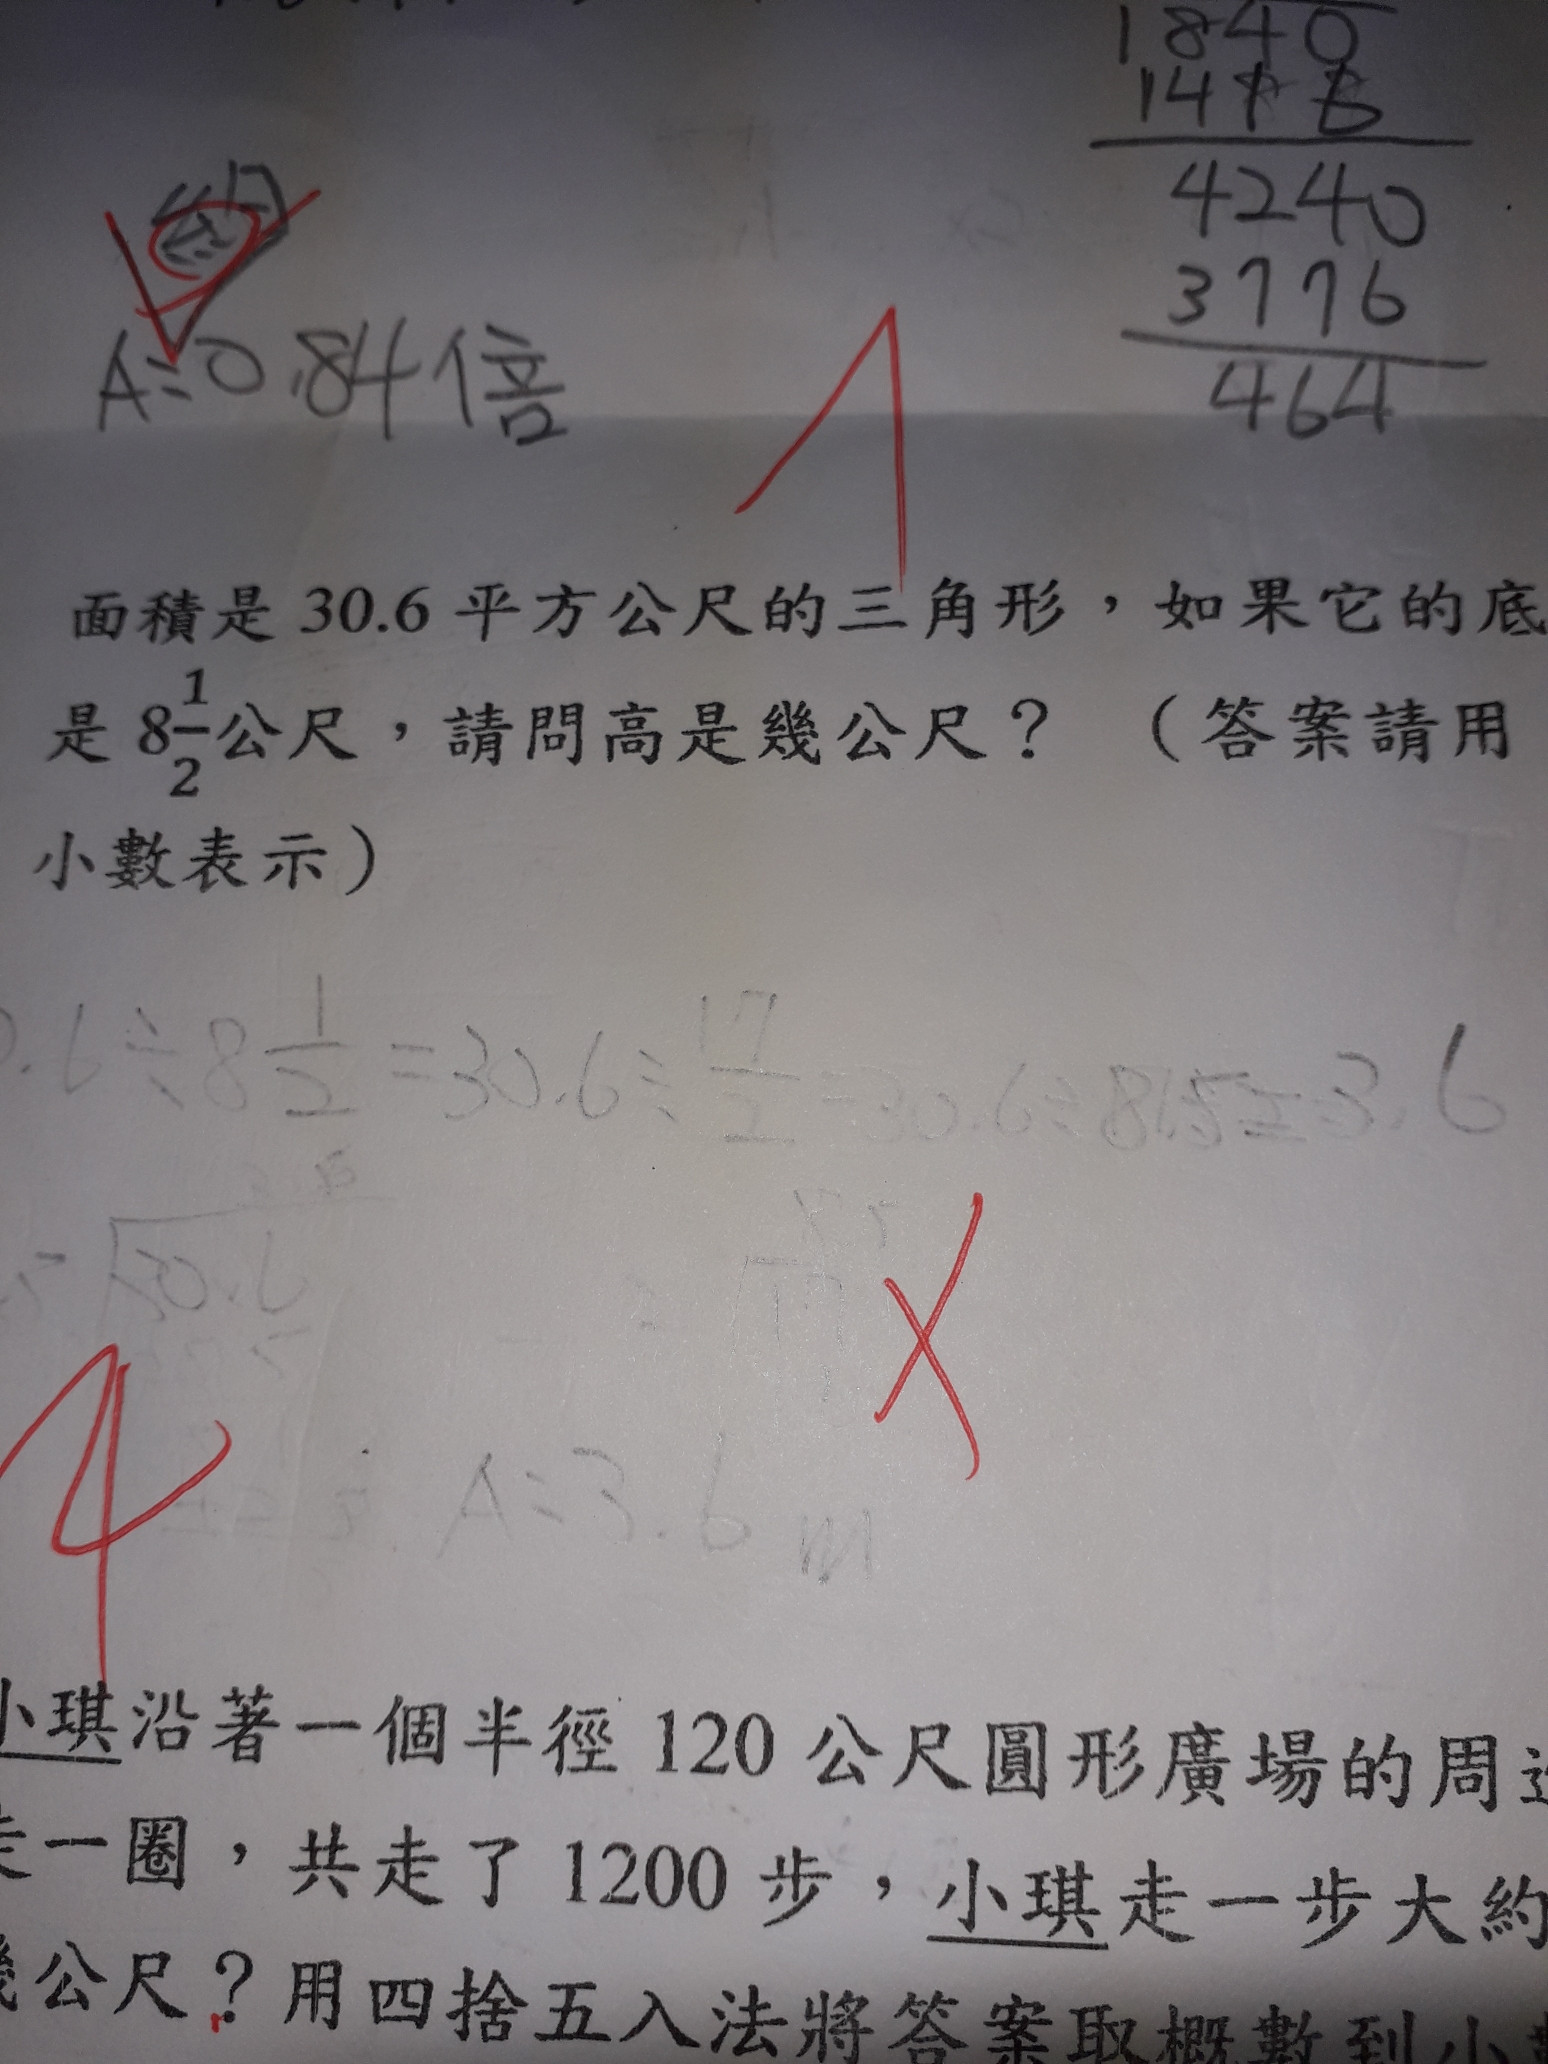 1840
1416
4240
3776
464
A=0.84倍
面積是 30.6 平方公尺的三角形，如果它的底
是 8 1/2 公尺，請問高是幾公尺？（答案請用
小數表示）
.6÷8 1/2=30.6÷17/2=30.6÷8.5=3.6
30.6
A=3.6m
小琪沿著一個半徑 120 公尺圓形廣場的周
走一圈，共走了 1200 步，小琪走一步大約
幾公尺？用四捨五入法將答案取概數到小